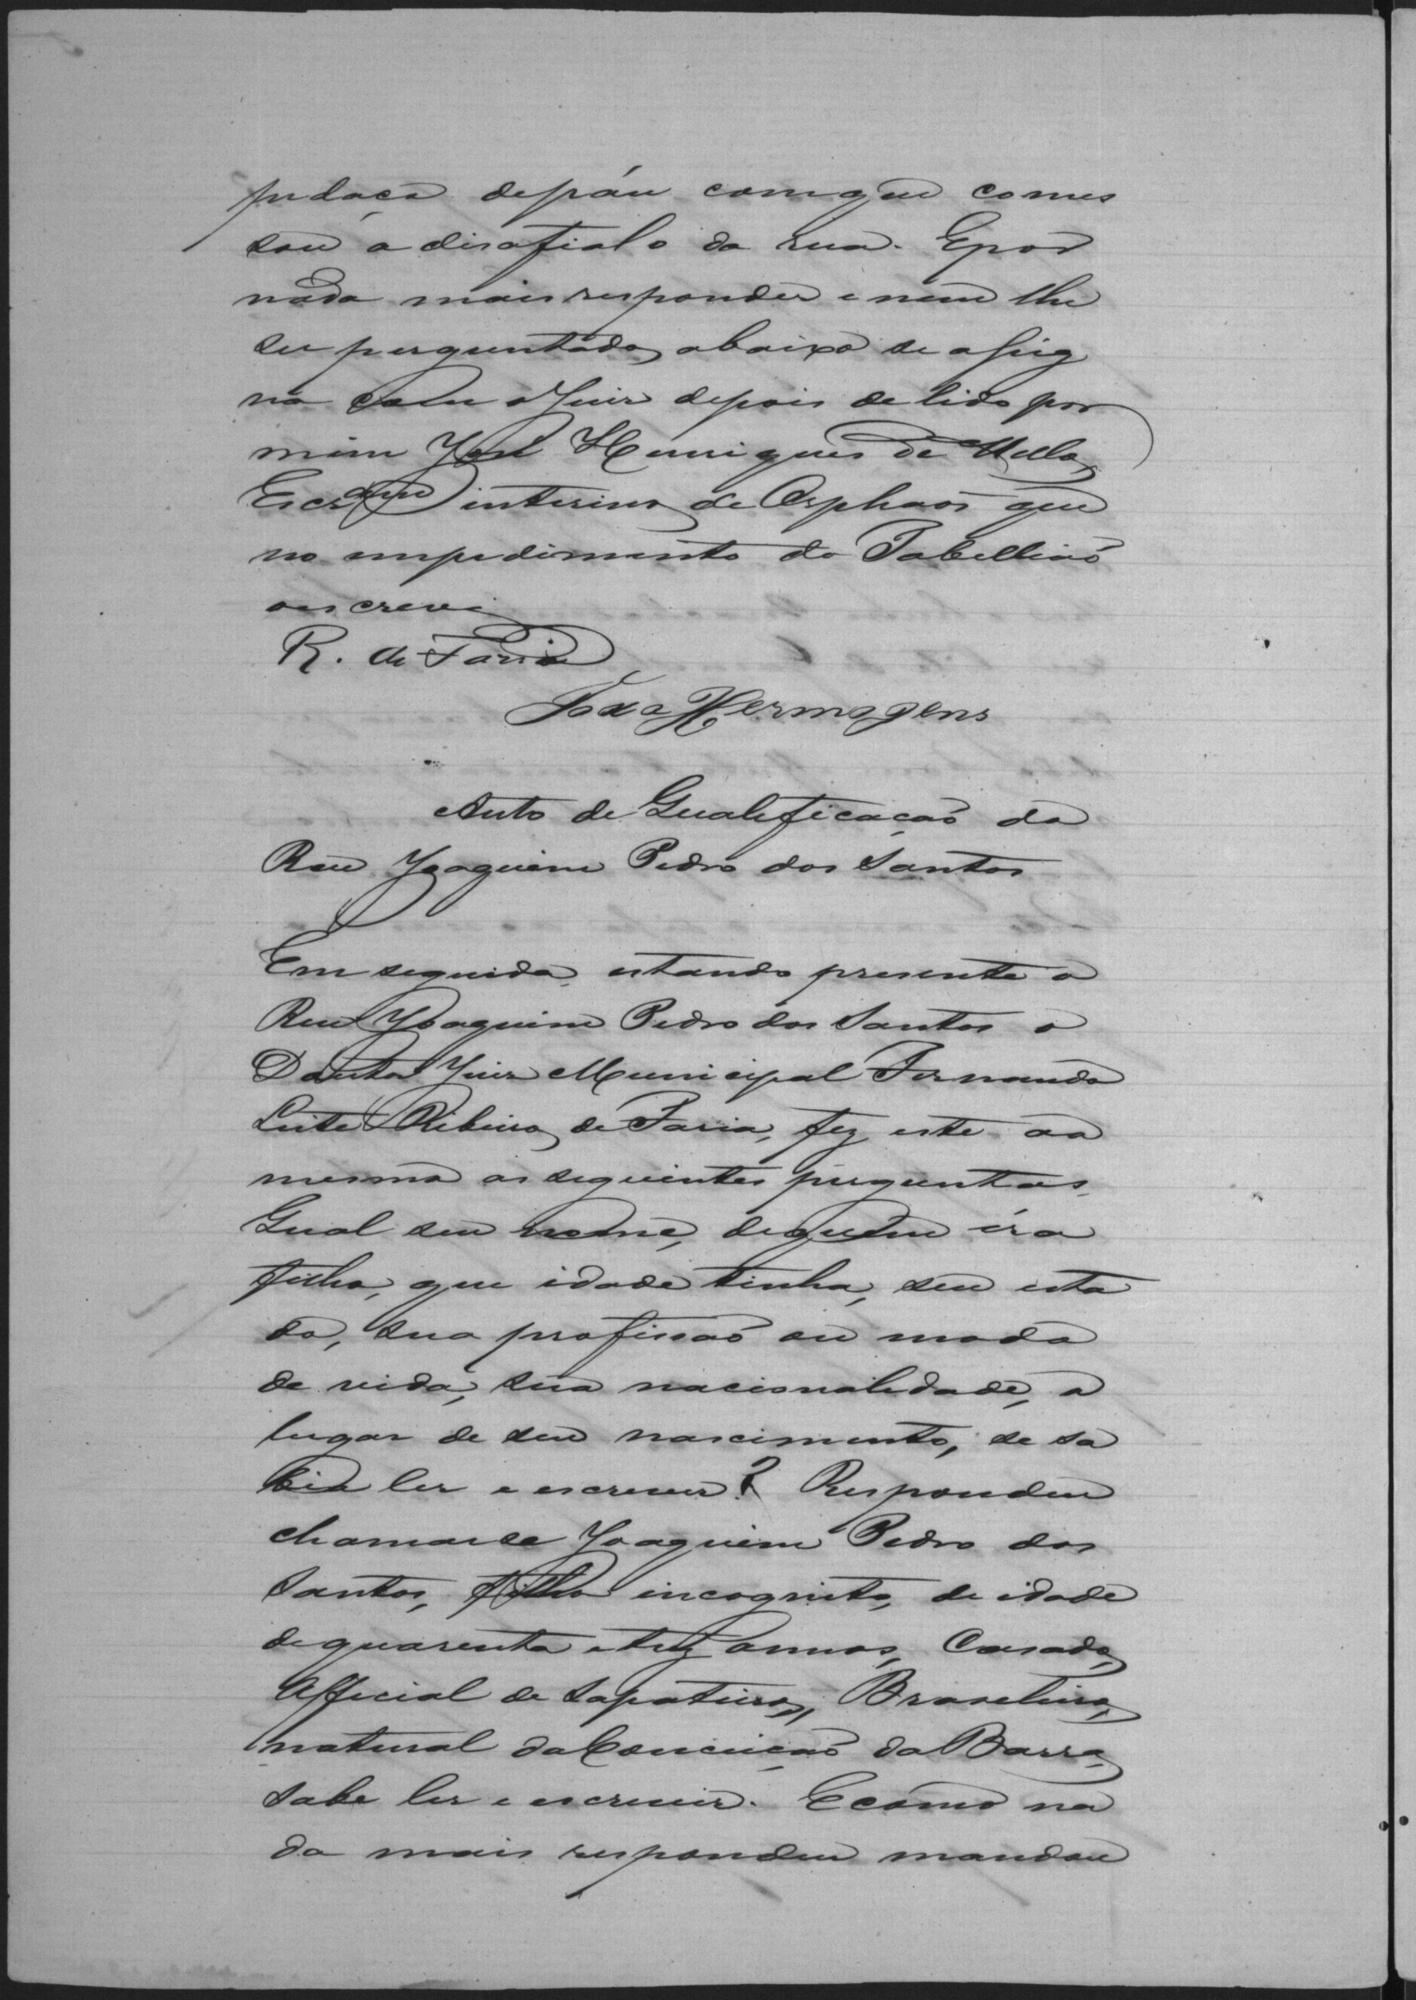 pedaço depáu comque comes
sou a disafialo da rua. Epor
nada mais responder e nem lhe
ser perguntado, abaixo se assig
na com o Juiz depois de lido por
mim José Henriques de Mello,
Escrivão interino de Orphaõs que
no impedimento do Tabelliaõ
oescrevi
R. de Faria
João Hermogens
Auto de Qualificaçaõ do
Reu Joaquim Pedro dos Santos
Em seguida, estando presente o
Reu Joaquim Pedro dos Santos o
Doutor Juiz Municipal Fernando
Leite Ribeiro de Faria, fez este ao
mesmo as seguintes perguntas,
Qual seu nome, dequem éra
filho, que idade tinha, seu esta
do, sua profissaõ ou modo
de vida, sua nacionalidade, o
lugar de seu nascimento, se sa
bia ler e escrever? Respondeu
chamarse Joaquim Pedro dos
Santos, filho incognito, de idade
dequarenta etrez annos, Casado,
Official de Sapateiro, Brazileiro,
natural daConceiçaõ da Barra,
Sabe ler e escrever. Ecomo na
da mais respondeu mandou